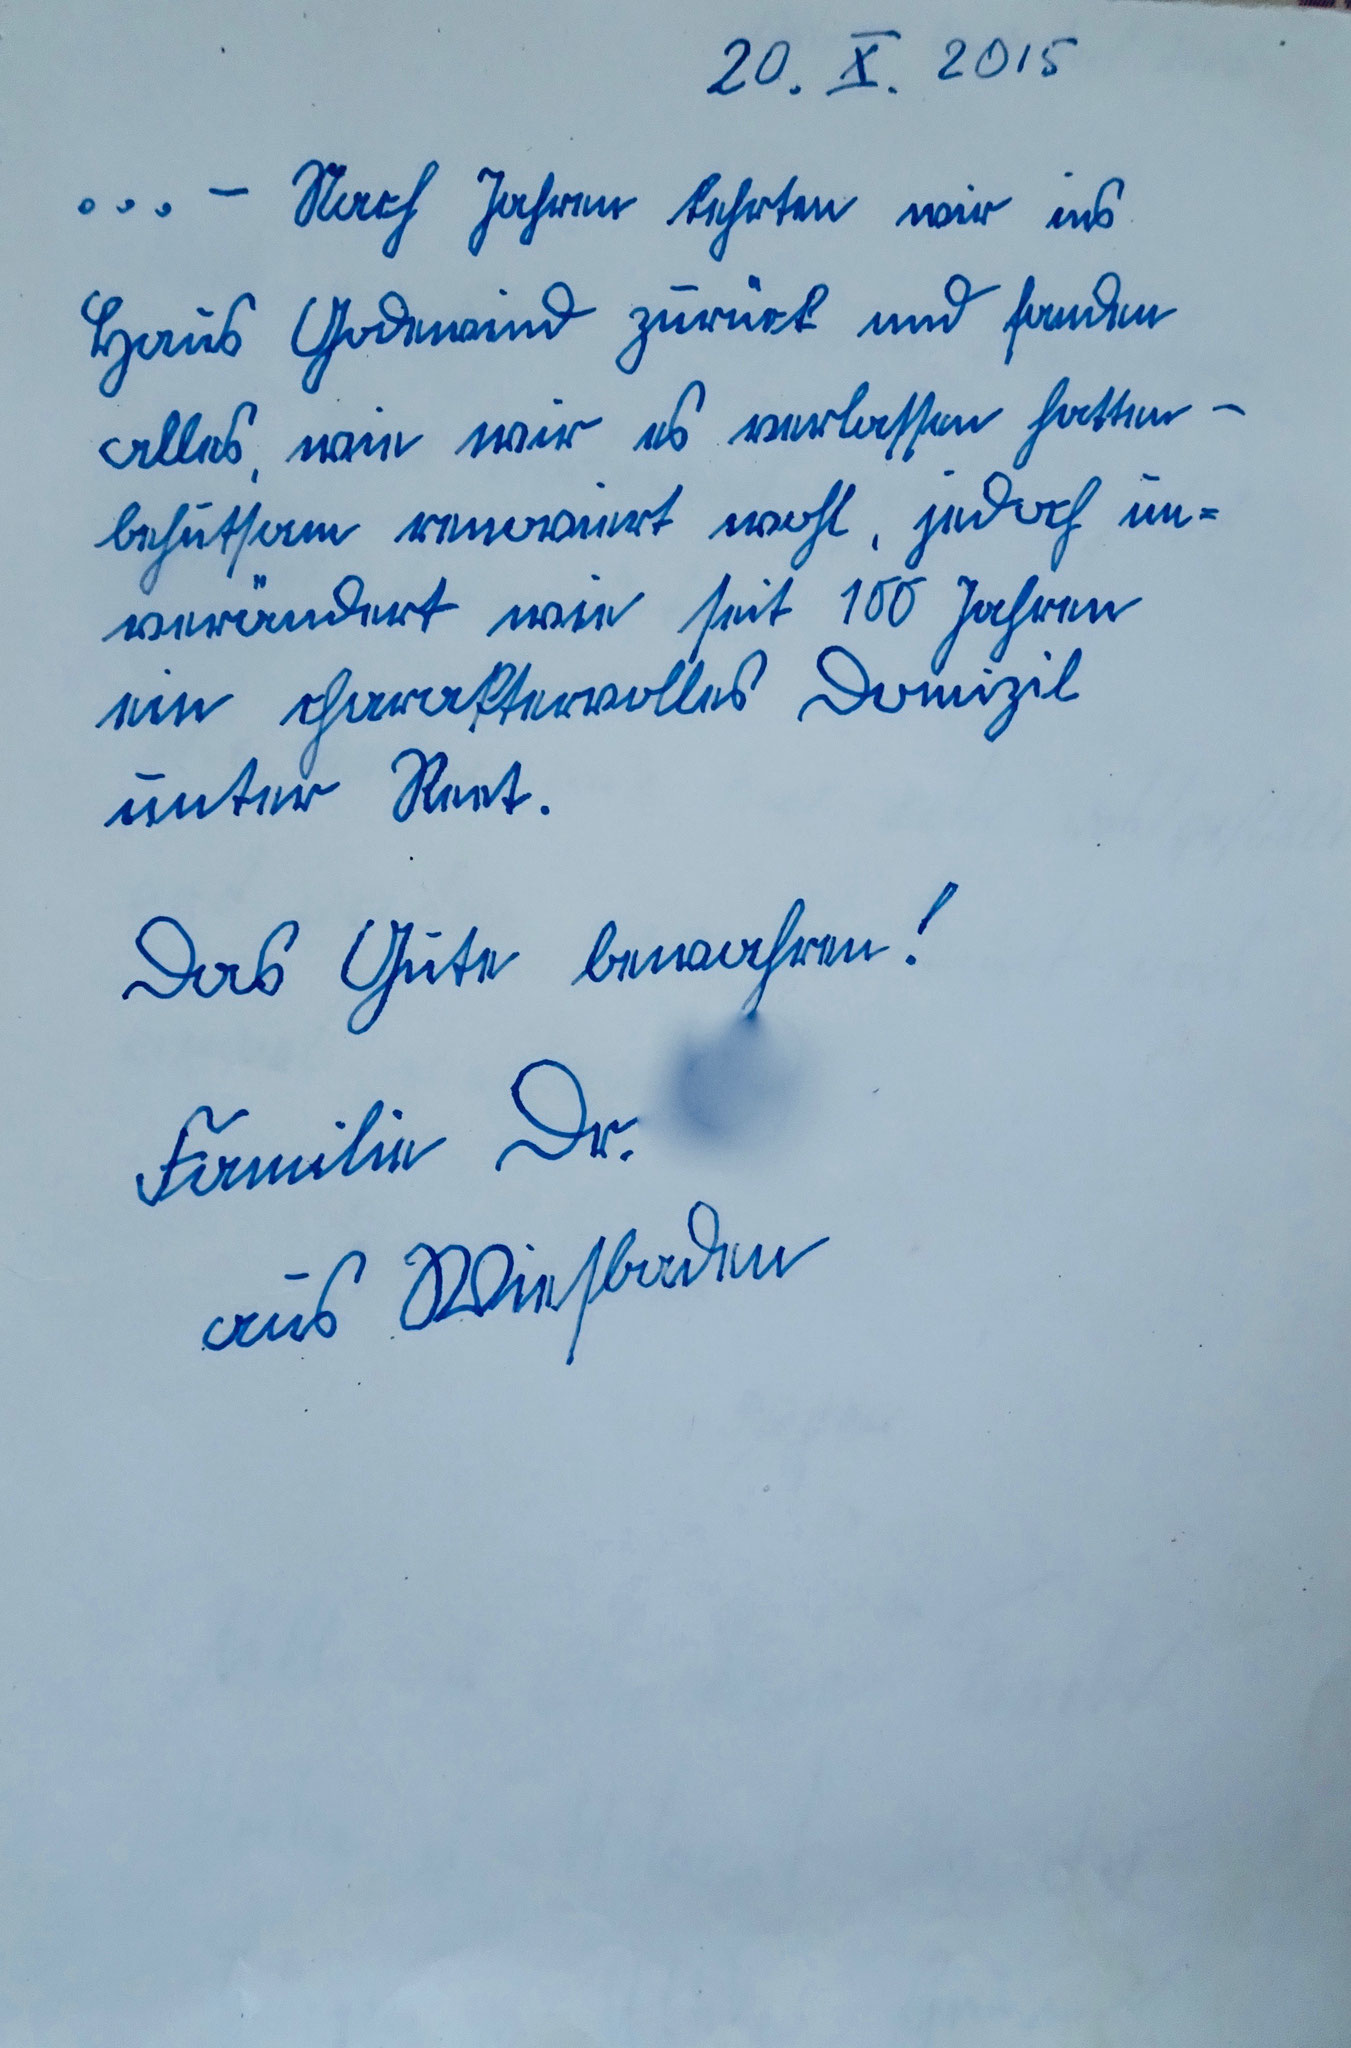 20. X. 2015
... – Nach Jahren kehrten wir ins
Haus Godewind zurück und fanden
alles, wie wir es verlassen hatten –
behutsam renoviert wohl, jedoch un=
verändert wie seit 100 Jahren
ein charaktervolles Domizil
unter Reet.
Das Gute bewahren!
Familie Dr.
aus Wiesbaden